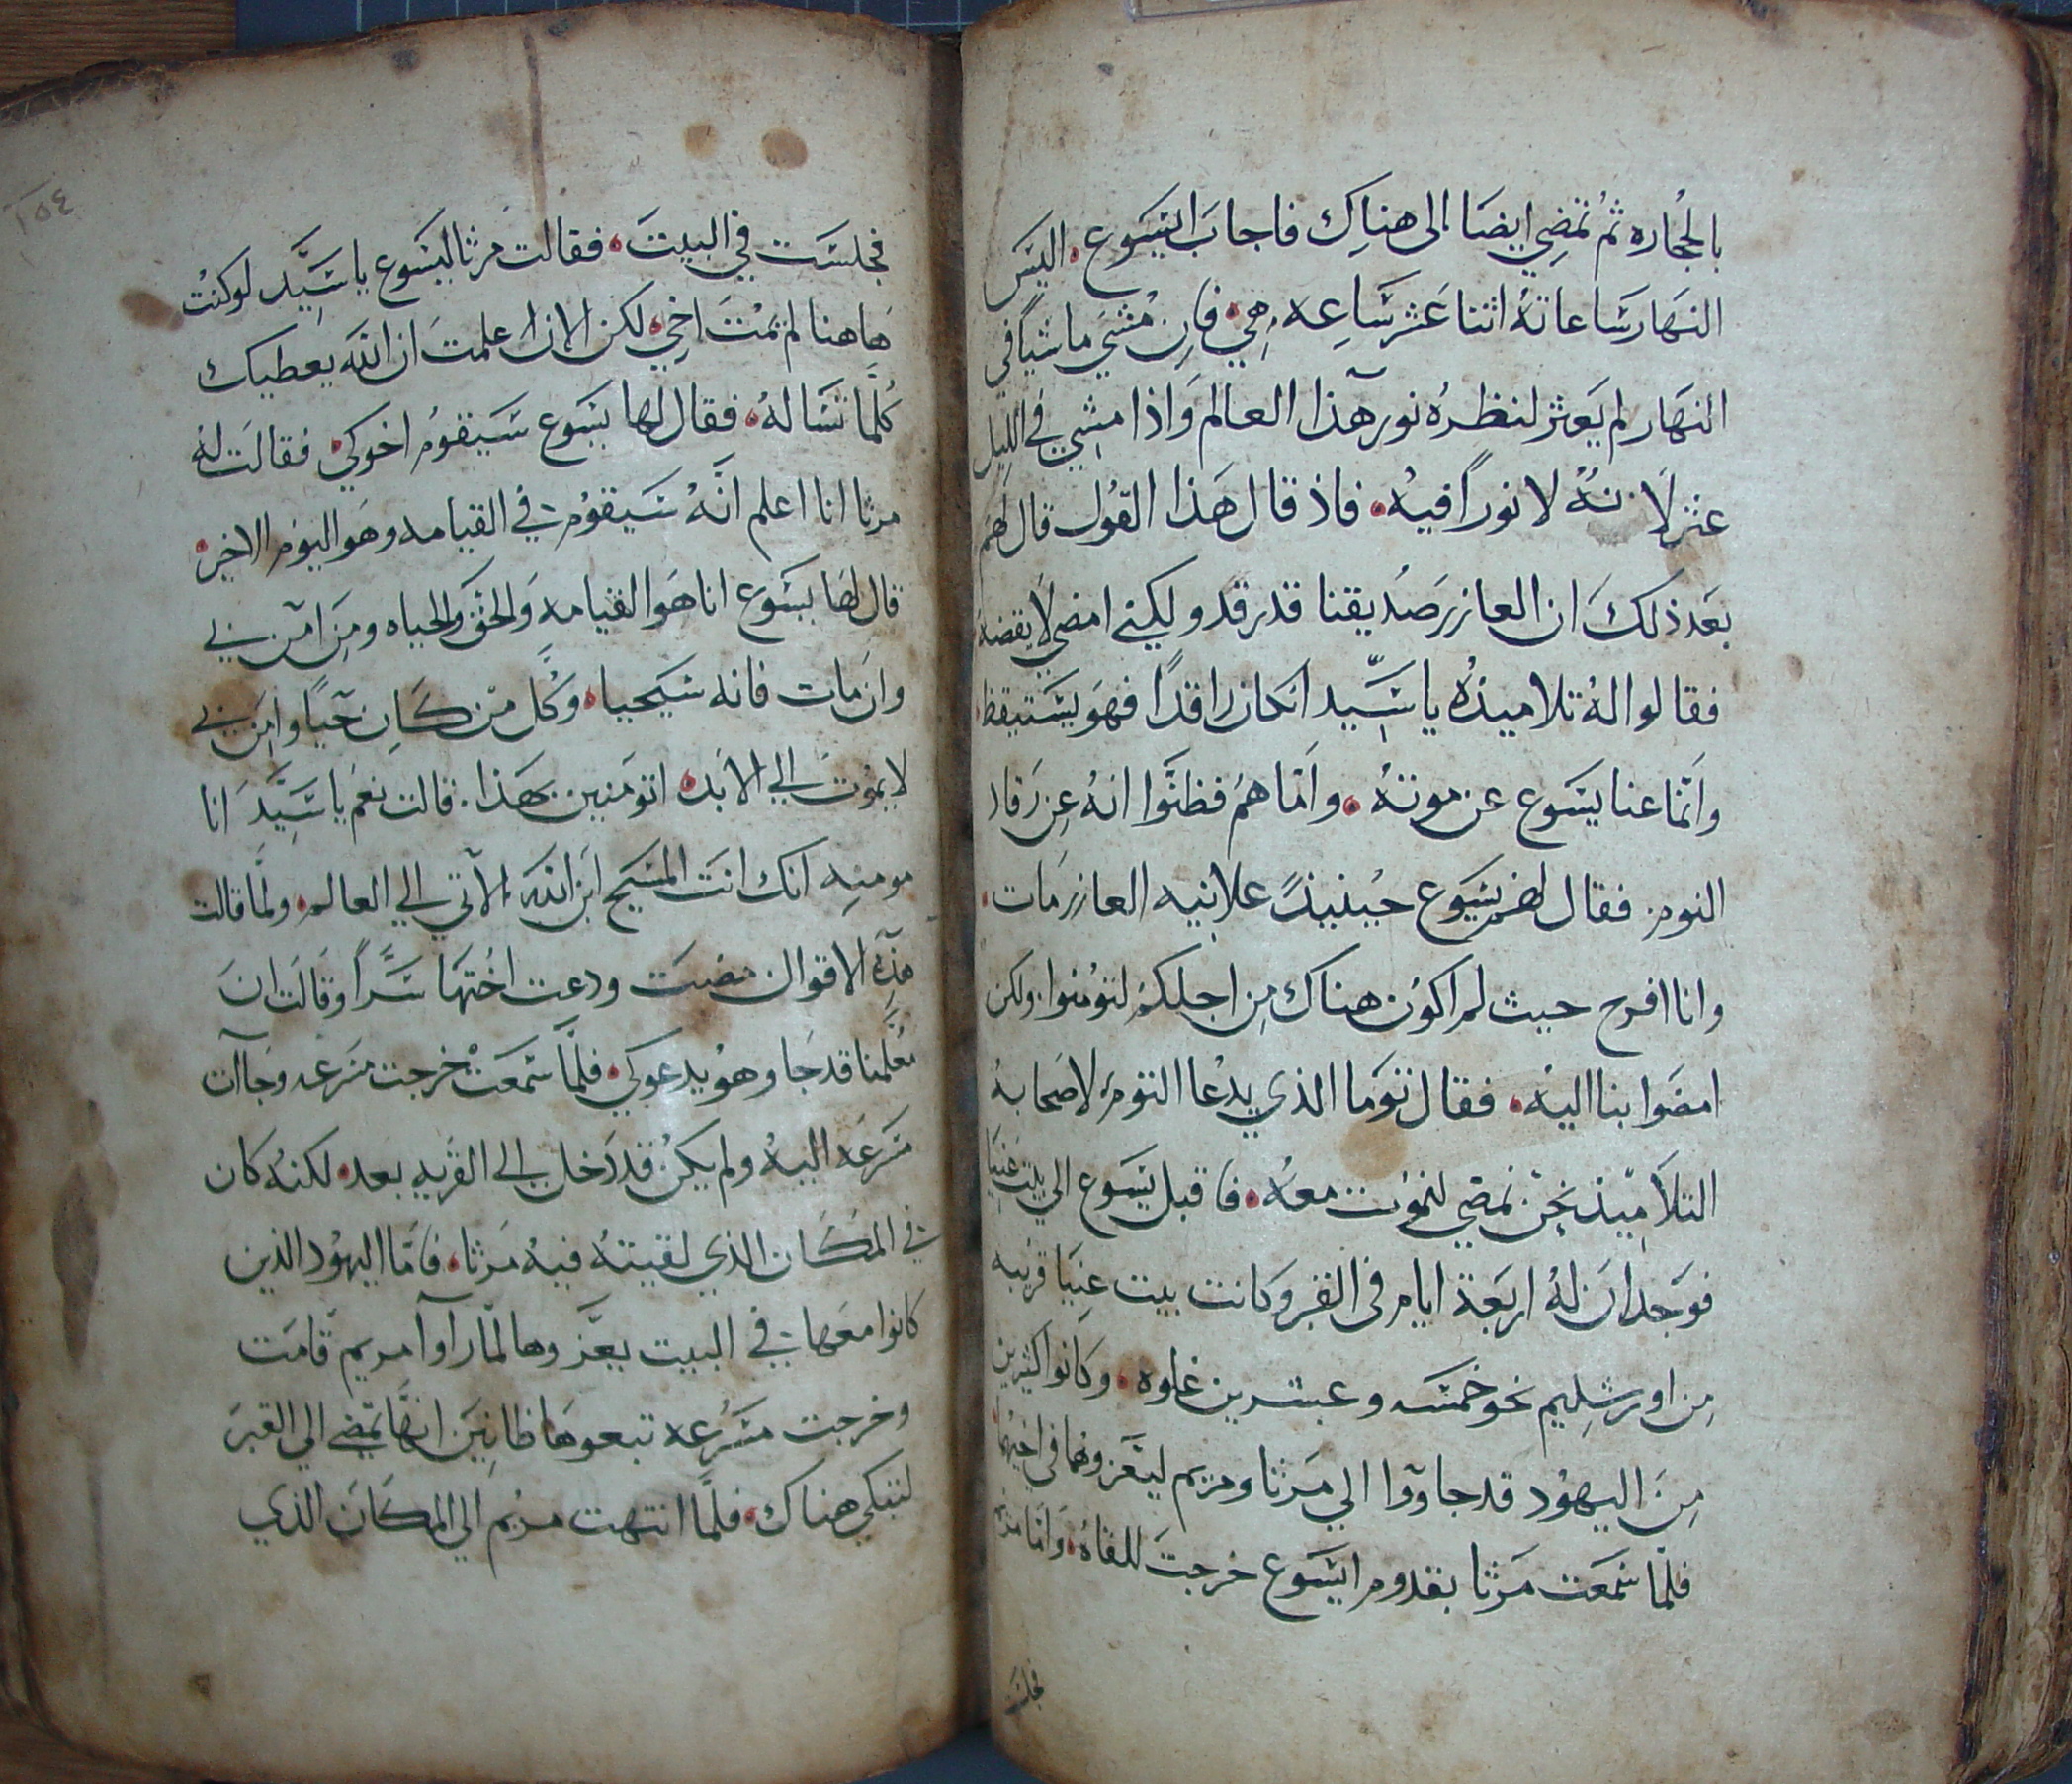 بالحجاره ثم تمضي ايضا الى هناك فاجاب ايسوع اليس
النهار ساعاته اثنا عشر ساعه هي فان مشي ماشيا في
النهار لم يعثر لنظره نور هذا العالم واذا مشي في الليل
عثر لانه لا نورا فيه فاذ قال هذا القول قال لهم
بعد ذلك ان العازر صديقنا قد رقد ولكني امضي لايقضه
فقالوا له تلاميذه يا سيد انكان راقدا فهو يستيقظ
وانما عنا يسوع عن موته واما هم فظنوا انه عن رقاد
النوم فقال لهم يسوع حينيذ علانيه العازر مات
وانا افرح حيث لم اكون هناك من اجلكم لتومنوا ولكن
امضوا بنا اليه فقال توما الذي يدعا التوم لاصحابه
التلاميذ نحن نمضي لنموت معه فاقبل يسوع الي بيت عنيا
فوجد ان له اربعة ايام في القبر وكانت بيت عنيا قريبه
من اورشليم نحو خمسه وعشرين غلوه وكانوا كثيرين
من اليهود قد جاووا الي مرثا ومريم ليعزوهما في اخيهما
فلما سمعت مرثا بقدوم ايسوع خرجت للقاه واما مريم
فجلست
١٥٤
فجلست في البيت فقالت مرثا ليسوع يا سيد لو كنت
هاهنا لم يمت اخي لكن الان اعلمت ان الله يعطيك
كلما تساله فقال لها يسوع سيقوم اخوكي فقالت له
مرثا انا اعلم انه سيقوم في القيامه وهو اليوم الاخير
قال لها يسوع انا هو القيامه والحق والحياه ومن آمن بي
وان مات فانه سيحيا وكل من كان حيا وامن بي
لا يموت الي الابد اتومنين بهذا قالت نعم يا سيد انا
مومنه انك انت المسيح ابن الله الآتي الي العالم ولما قالت
هذه الاقوال مضت ودعت اختها سرا وقالت ان
معلمنا قد جا وهو يدعوكي فلما سمعت خرجت مسرعه وجاآت
مسرعه اليه ولم يكن قد دخل الي القريه بعد لكنه كان
في المكان الذي لقيته فيه مرثا فاما اليهود الذين
كانوا معها في البيت يعزوها لما راوآ مريم قامت
وخرجت مسرعه تبعوها ظانين انها تمضي الي القبر
لتبكي هناك فلما انتهت مريم الي المكان الذي